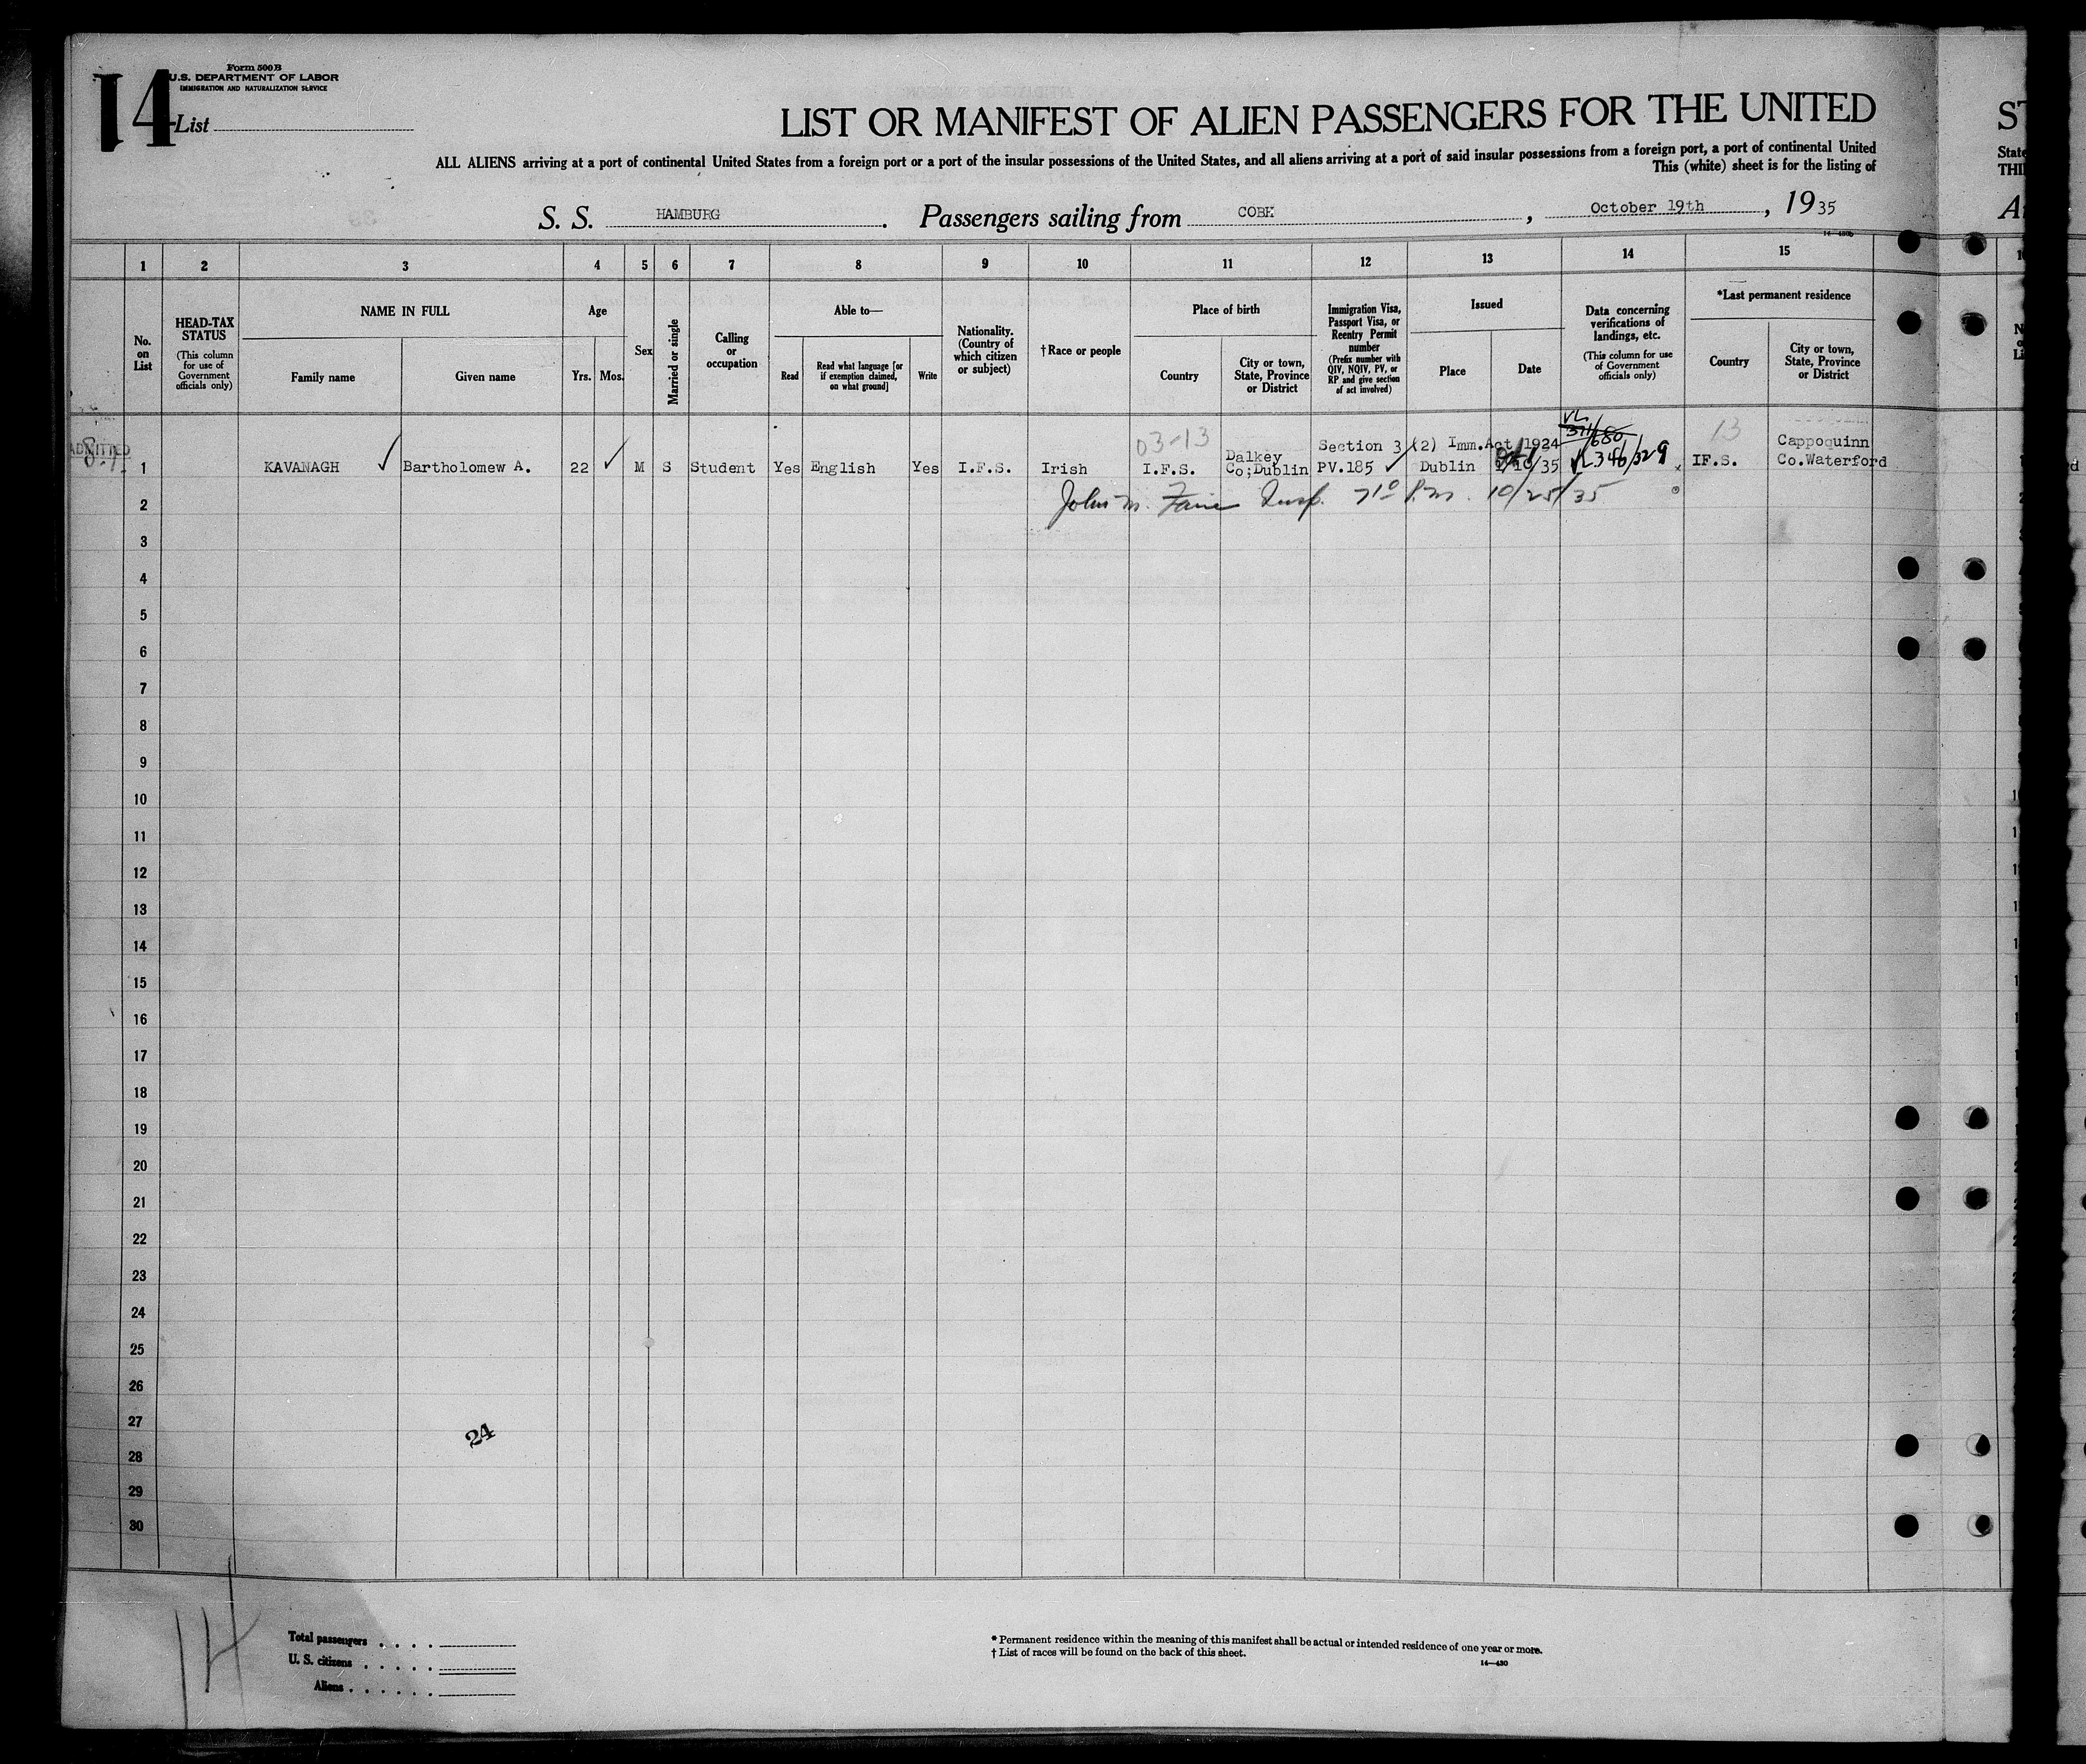 Form 500 B
U.S. DEPARTMENT OF LABOR
IMMIGRATION AND NATURALIZATION SERVICE
14
List
LIST OR MANIFEST OF ALIEN PASSENGERS FOR THE UNITED
ST
ALL ALIENS arriving at a port of continental United States from a foreign port or a port of the insular possessions of the United States, and all aliens arriving at a port of said insular possessions from a foreign port, a port of continental United
State
This (white) sheet is for the listing of
S. S. HAMBURG. Passengers sailing from COBH, October 19th, 1935
1 2 3 4 5 6 7 8 9 10 11 12 13 14 15
No. on List
HEAD-TAX STATUS
(This column for use of Government officials only)
NAME IN FULL
Family name
Given name
Age
Yrs. Mos.
Sex
Married or single
Calling or occupation
Able to—
Read
Read what language [or if exemption claimed, on what ground]
Write
Nationality. (Country of which citizen or subject)
†Race or people
Place of birth
Country
City or town, State, Province or District
Immigration Visa, Passport Visa, or Reentry Permit number
(Prefix number with QIV, NQIV, PV, or RP and give section of act involved)
Issued
Place
Date
Data concerning verifications of landings, etc.
(This column for use of Government officials only)
*Last permanent residence
Country
City or town, State, Province or District
03-13
VL 311/680
13
ADMITTED
Section 3 (2) Imm.Act 1924
Cappoquinn
Dalkey
1 KAVANAGH Bartholomew A. 22 M S Student Yes English Yes I.F.S. Irish I.F.S. Co;Dublin PV.185 Dublin /10/35 VL 346/329 IF.S. Co.Waterford
2 John M. Insp. P.M. 10/25/35
3
4
5
6
7
8
9
10
11
12
13
14
15
16
17
18
19
20
21
22
23
24
25
26
27
24
28
29
30
14
Total passengers
U. S. citizens
Aliens
* Permanent residence within the meaning of this manifest shall be actual or intended residence of one year or more.
† List of races will be found on the back of this sheet.
14—430